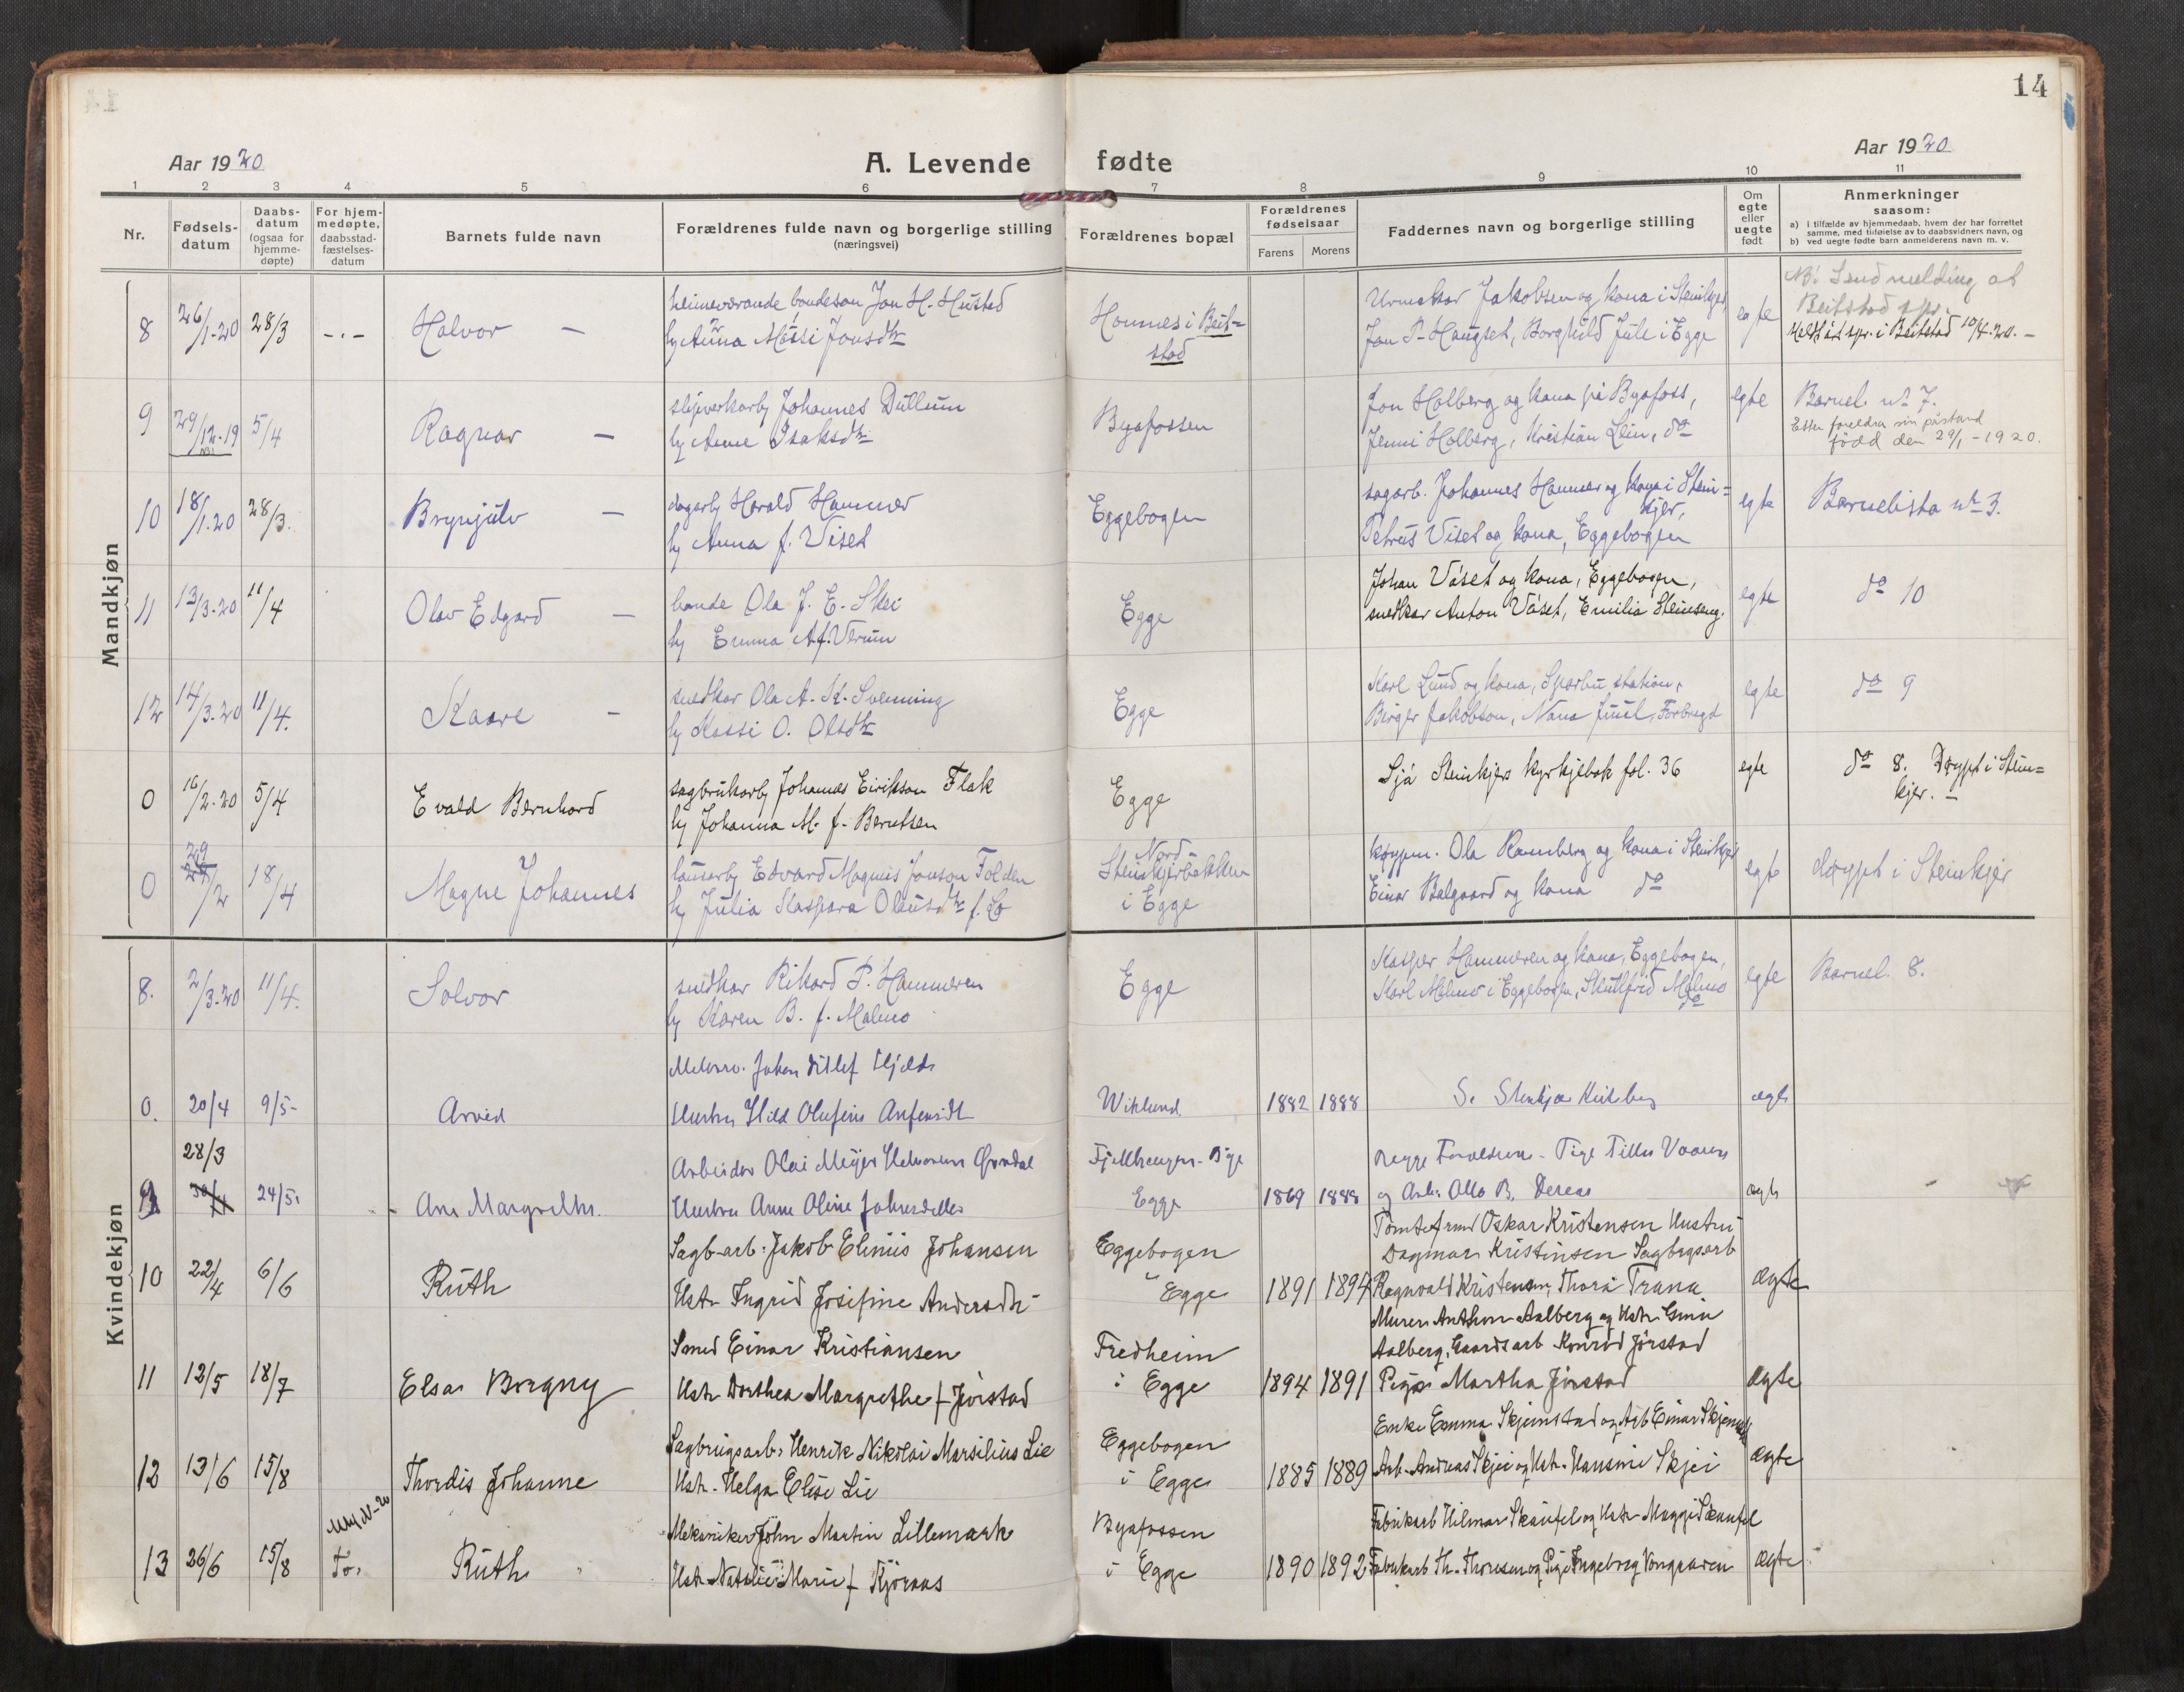 14
Aar 1920
A. Levende fødte
Aar 1920
1 2 3 4 5 6 7 8 9 10 11
Nr.
Fødsels-
datum
Daabs-
datum
(ogsaa for
hjemme-
døpte)
For hjem-
medøpte,
daabsstad-
fæstelses-
datum
Barnets fulde navn
Forældrenes fulde navn og borgerlige stilling
(næringsvei)
Forældrenes bopæl
Forældrenes
fødselsaar
Farens Morens
Faddernes navn og borgerlige stilling
Om
egte
eller
uegte
født
Anmerkninger
saasom:
a) i tilfælde av hjemmedaab, hvem der har forrettet
samme, med tilføielse av to daabsvidners navn, og
b) ved uegte fødte barn anmelderens navn m. v.
Mandkjøn
8 26/1-20 28/3 -.- Halvor —
heimeværande bondeson Jon H. Hustad
Anna Massi Jonsdtr
Honnes i Beit-
stad
Urmakar Jakobsen og kona i Steinkjer,
Jon P. Haugset, Borghild Jule i Egge
egte
NB. Send melding at
Beitstad spr.
Meldt åt spr. i Beitstad 10/4-20. —
9 29/12-19 5/4 Ragnar —
Johannes Dullum
Anne Isaksdtr
Byafossen
Jon Holberg og kona på Byafoss,
Jenni Holberg, Kristian Lein, do
egte
Barnel. nr 7.
Etter foreldra sin påstand
fødd den 29/1-1920.
10 18/1.20 28/3. Brynjulv —
dagarb Harald Hammer
hy Anna f. Viset
Eggebogen
sagarb. Johannes Hammer og kona i Stein-
kjer,
Petrus Viset og kona, Eggebogen
egte
Barnelista nr 3.
11 13/3-20 11/4 Olav Edgard —
bonde Ola J. E. Skei
hy Emma A. f. Verum
Egge
Johan Våset og kona, Eggebogen,
snedkar Anton Våset, Emilia Steinseng.
egte
do 10
12 14/3-20 11/4. Kaare —
snedkar Ola A. K. Svenning
hy Kassi O. Olsdtr
Egge
Karl Lund og kona, Sparbu station,
Birger Jakobson, Nana Juul, Forbregd
egte
do 9
0 16/2-20 5/4 Evald Bernhard
sagbrukarb Johannes Eirikson Flak
hy Johanna M. f. Berntsen
Egge
Sjå Steinkjers kyrkjebok fol. 36
egte
do 8. Døypt i Stein-
kjer. —
0 29/2 18/4 Magne Johannes
lausarb Edvard Magnus Jonson Folden
hy Julia Kaspara Olausdtr f. Lø
Nord-
Steinkjerbakken
i Egge
køypm. Ola Ramberg og kona i Steinkjer
Einar Balgaard og kona do
egte
døypt i Steinkjer
Kvindekjøn
8. 2/3-20 11/4. Solvor
snedkar Rikard P. Hammeren
hy Karen B. f. Malmo
Egge
Kaspar Hammeren og kona, Eggebogen,
Karl Malmo i Eggebogen, Malmo
do
egte
Barnel. 8.
0. 20/4 9/5- Arvid
Johan Ditlef
Hustru Hild Olufine
Wiklund
1882 1888
S. Stenkjær Kirkebog
ægte
28/3
9 24/5. Ane Margrethe.
Arbeider Olai Meyer
Hustru Anne Oline
Egge
1869 1888
Begge Forældrene - Pige
og Arb. Otto B.
ægte
10 22/4 6/6 Ruth
Sagb-arb: Jakob Elinius Johansen
Hstr Ingrid Josefine Andersdtr-
Eggebogen
" Egge
1891 1894
Tomtefrmd Oskar Kristensen Hustru
Dagmar Kristinsen Sagbrgsarb
Ragnvald Kristensen, Thora Trana
ægte
11 12/5 18/7 Elsa Borgny
Smed Einar Kristiansen
Hstr Dorthea Margrethe f Jørstad
Fredheim
i Egge
1894 1891
Murer Anthon Aalberg og Hstr
Aalberg, Gaardsarb Konrad Jørstad
Pige Martha Jørstad
ægte
12 13/6 15/8 Thordis Johanne
Sagbrugsarb: Henrik Nikolai Marsilius Lie
Hstr. Helga Elise Lie
Eggebogen
i Egge
1885 1889
Enke Emma Skjemstad og Arb Einar Skjemstad
Arb. Andreas Skjei og Hstr. Hansine Skjei
ægte
13 26/6 15/8 Ruth
Mekaniker John Martin Lillemark
Hstr Natalie Marie f Kjøraas
Byafossen
i Egge
1890 1892
Fabrikarb Hilmar Skaufel og Hstr Maggi Skaufel
Fabrikarb Th. Thoresen og Pige Ingeborg
ægte